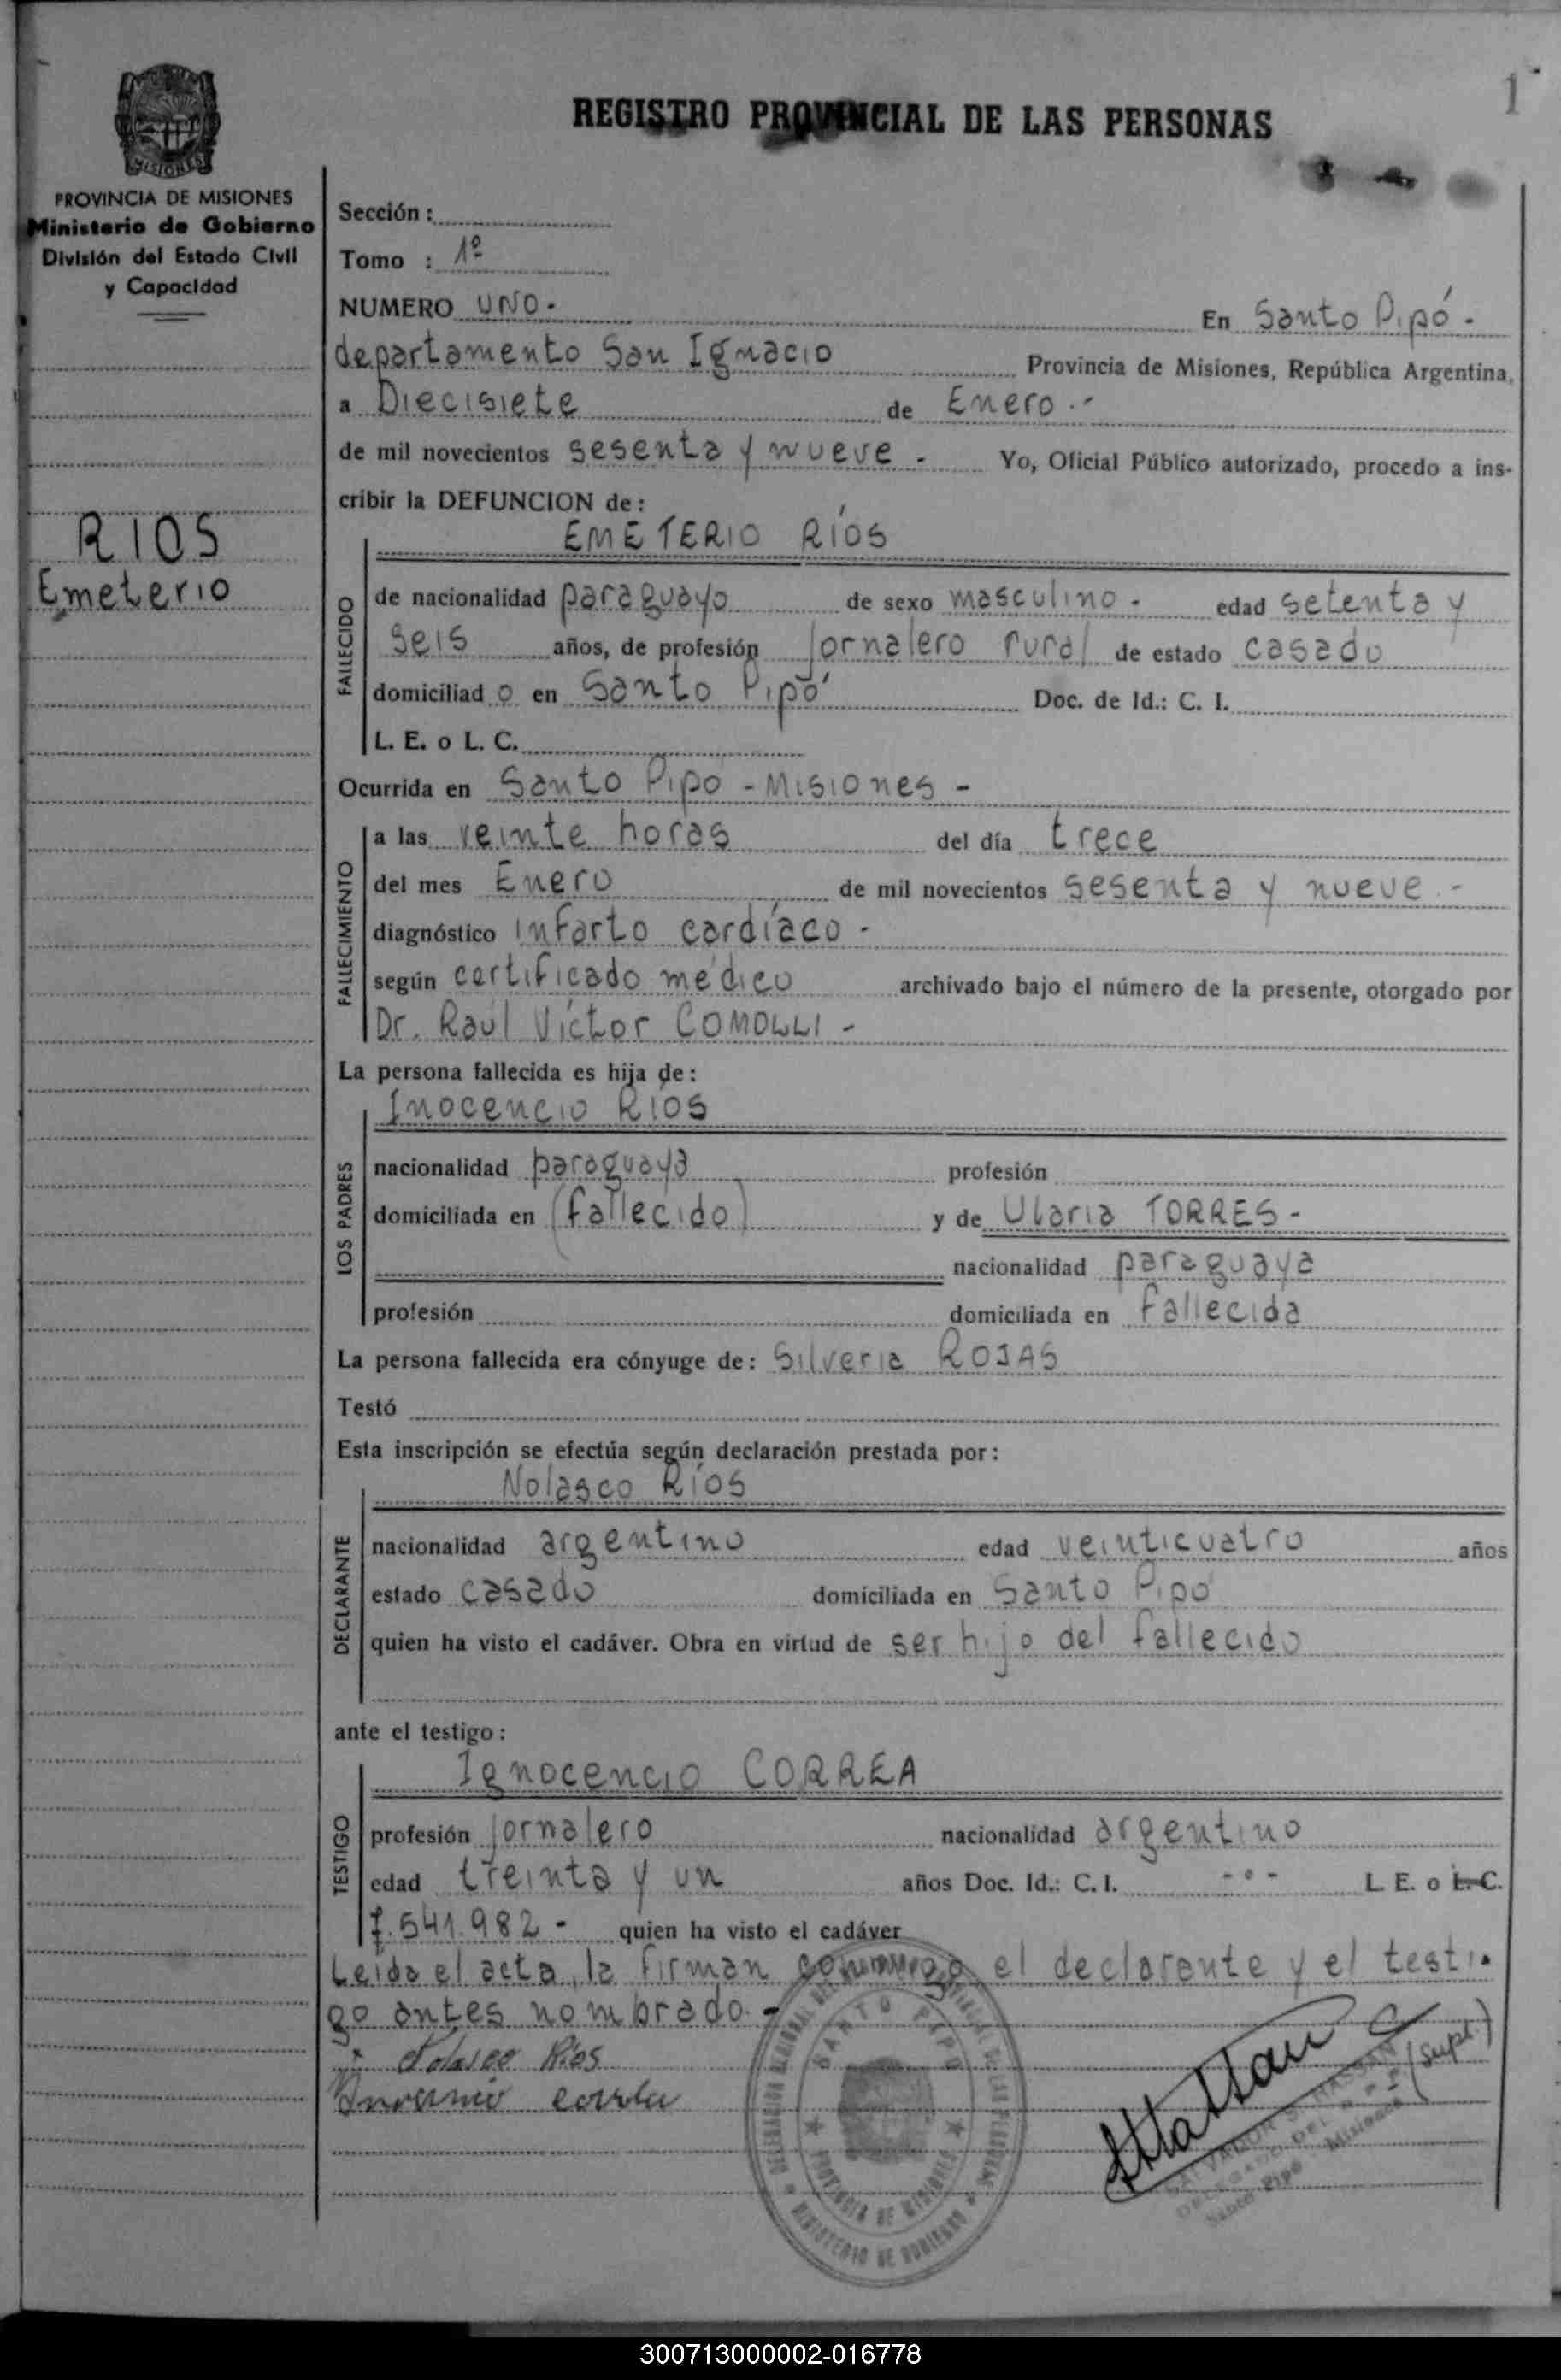 1
REGISTRO PROVINCIAL DE LAS PERSONAS
MISIONES
PROVINCIA DE MISIONES
Ministerio de Gobierno
División del Estado Civil
y Capacidad
RIOS
Emeterio
Sección :
Tomo : 1º
NUMERO UNO.- En Santo Pipó.-
departamento San Ignacio Provincia de Misiones, República Argentina,
a Diecisiete de Enero.-
de mil novecientos sesenta y nueve.- Yo, Oficial Público autorizado, procedo a ins-
cribir la DEFUNCION de :
EMETERIO RÍOS
FALLECIDO
de nacionalidad paraguayo de sexo masculino.- edad setenta y
seis años, de profesión jornalero rural de estado casado
domiciliad o en Santo Pipó Doc. de Id.: C. I.
L. E. o L. C.
Ocurrida en Santo Pipo - Misiones -
FALLECIMIENTO
a las veinte horas del día trece
del mes Enero de mil novecientos sesenta y nueve.-
diagnóstico infarto cardíaco -
según certificado médico archivado bajo el número de la presente, otorgado por
Dr. Raúl Víctor COMOLLI -
La persona fallecida es hija de :
LOS PADRES
Inocencio RIOS
nacionalidad paraguaya profesión
domiciliada en (fallecido) y de Ularia TORRES -
nacionalidad paraguaya
profesión domiciliada en fallecida
La persona fallecida era cónyuge de : Silveria ROJAS
Testó
Esta inscripción se efectúa según declaración prestada por :
DECLARANTE
Nolasco Ríos
nacionalidad argentino edad veinticuatro años
estado casado domiciliada en Santo Pipó
quien ha visto el cadáver. Obra en virtud de ser hijo del fallecido
ante el testigo :
TESTIGO
Ignocencio CORREA
profesión jornalero nacionalidad argentino
edad treinta y un años Doc. Id.: C. I. --- L. E. o L. C.
7.541.982 - quien ha visto el cadáver
Leída el acta, la firman conmigo el declarente y el testi-
go antes nombrado.-
Nolasco Rios
(Supl.)
SANTO PIPO
PROVINCIA DE MISIONES
MINISTERIO DE GOBIERNO
Santo Pipó - Misiones
300713000002-016778